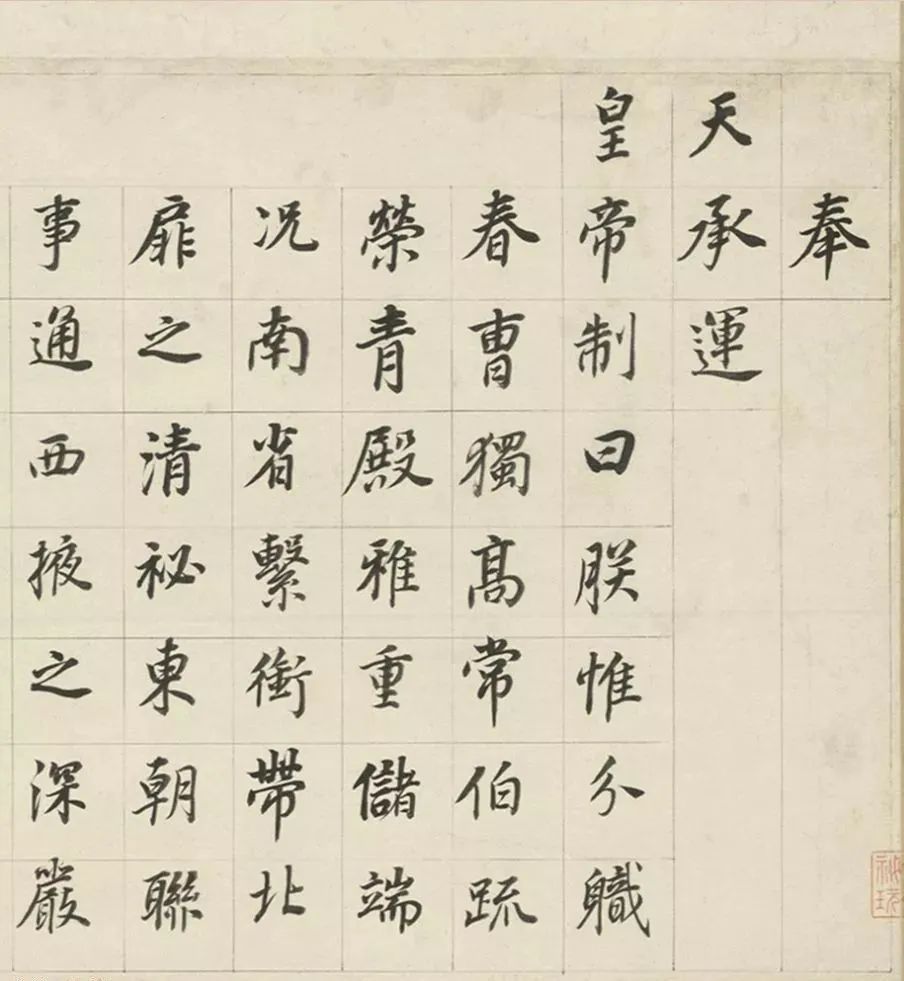 奉
天承運
皇帝制曰朕惟分職
春曹獨高常伯疏
榮青殿雅重儲端
况南省繫銜帶北
扉之清祕東朝聯
事通西掖之深嚴